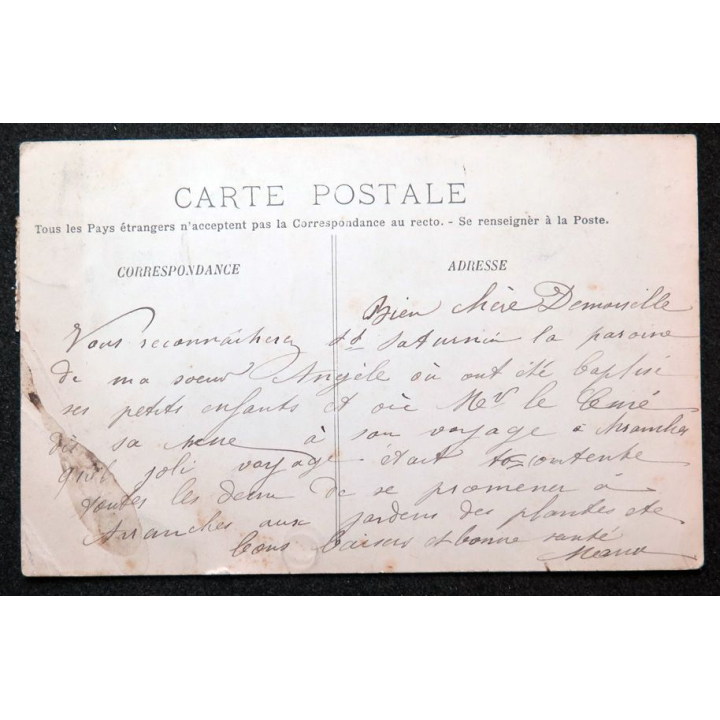 CARTE POSTALE
Tous les Pays étrangers n'acceptent pas la Correspondance au recto. - Se renseigner à la Poste.
CORRESPONDANCE
ADRESSE
Bien chère Demoiselle
Vous reconnaîtrez St Saturnin la paroisse
de ma soeur Angèle où ont été baptisé
ses petits enfants et où Mr le Curé
dit sa messe à son voyage à Avranches
quel joli voyage était contente
toutes les deux de se promener à
Avranches aux jardins des plantes etc
bons baisers et bonne santé